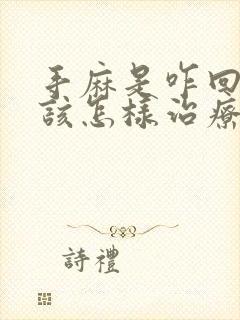 手麻是咋回
該怎樣治療
詩禮